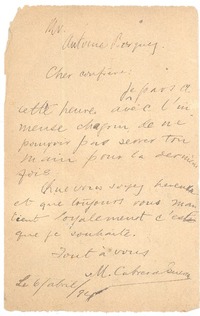 Mr.
Antoine
Cher confrère:
Je pars à
cette heure avec l'im
mense chagrin de ne
pouvoir pas serrer ton
main pour la dernière
fois.
Que vous soyez heureux
et que toujours vous main
loyalement c'est
que je souhaite.
Tout à vous
M. Cabrera
Le 6/abre/